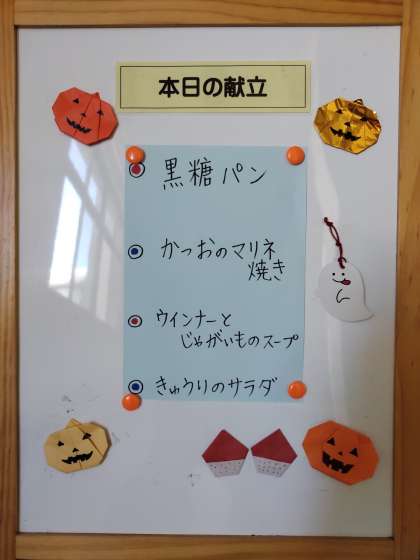 本日の献立
黒糖パン
かつおのマリネ
焼き
ウインナーと
じゃがいものスープ
きゅうりのサラダ